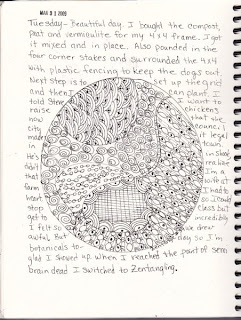 MAR 31 2009
Tuesday - Beautiful day. I bought the compost,
peat and vermiculite for my 4x4 frame. I got
it mixed and in place. Also pounded in the
four corner stakes and surrounded the 4x4
with plastic fencing to keep the dogs out.
Next step is to set up the grid
and then I can plant. I
told Steve I want to
raise chickens
now that the
city council
made it legal
in town.
He's in shock
a bit realize
that I'm a
farm wife at
heart I had to
stop so I could
get to class but
I felt so incredibly
awful. But we drew
botanicals to- day so I'm
glad I showed up. When I reached the point of semi
brain dead I switched to Zentangling.